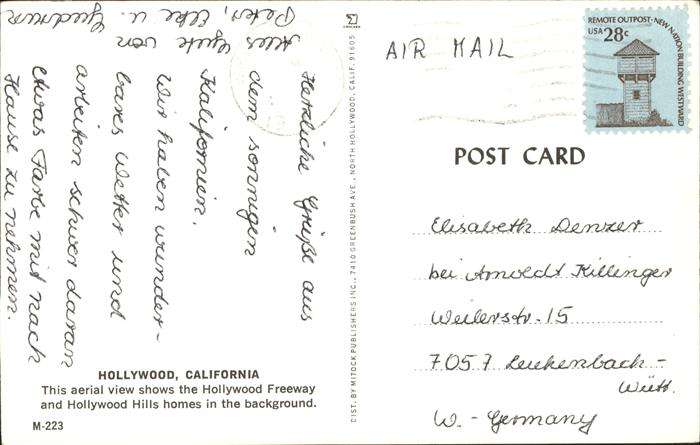 Herzliche Grüße aus
dem sonnigen
Kalifornien.
Wir haben wunder-
bares Wetter und
arbeiten schwer daran
etwas Farbe mit nach
Hause zu nehmen.
Alles Gute von
Peter, Elke u. Gudrun
HOLLYWOOD, CALIFORNIA
This aerial view shows the Hollywood Freeway
and Hollywood Hills homes in the background.
M-223
DIST. BY MITOCK PUBLISHERS INC., 7410 GREENBUSH AVE., NORTH HOLLYWOOD, CALIF. 91605
AIR MAIL
REMOTE OUTPOST • NEW NATION BUILDING WESTWARD
USA 28c
POST CARD
Elisabeth Denzer
bei Arnoldt Killinger
Weilerstr. 15
7057 Leukenbach -
Württ.
W. - Germany